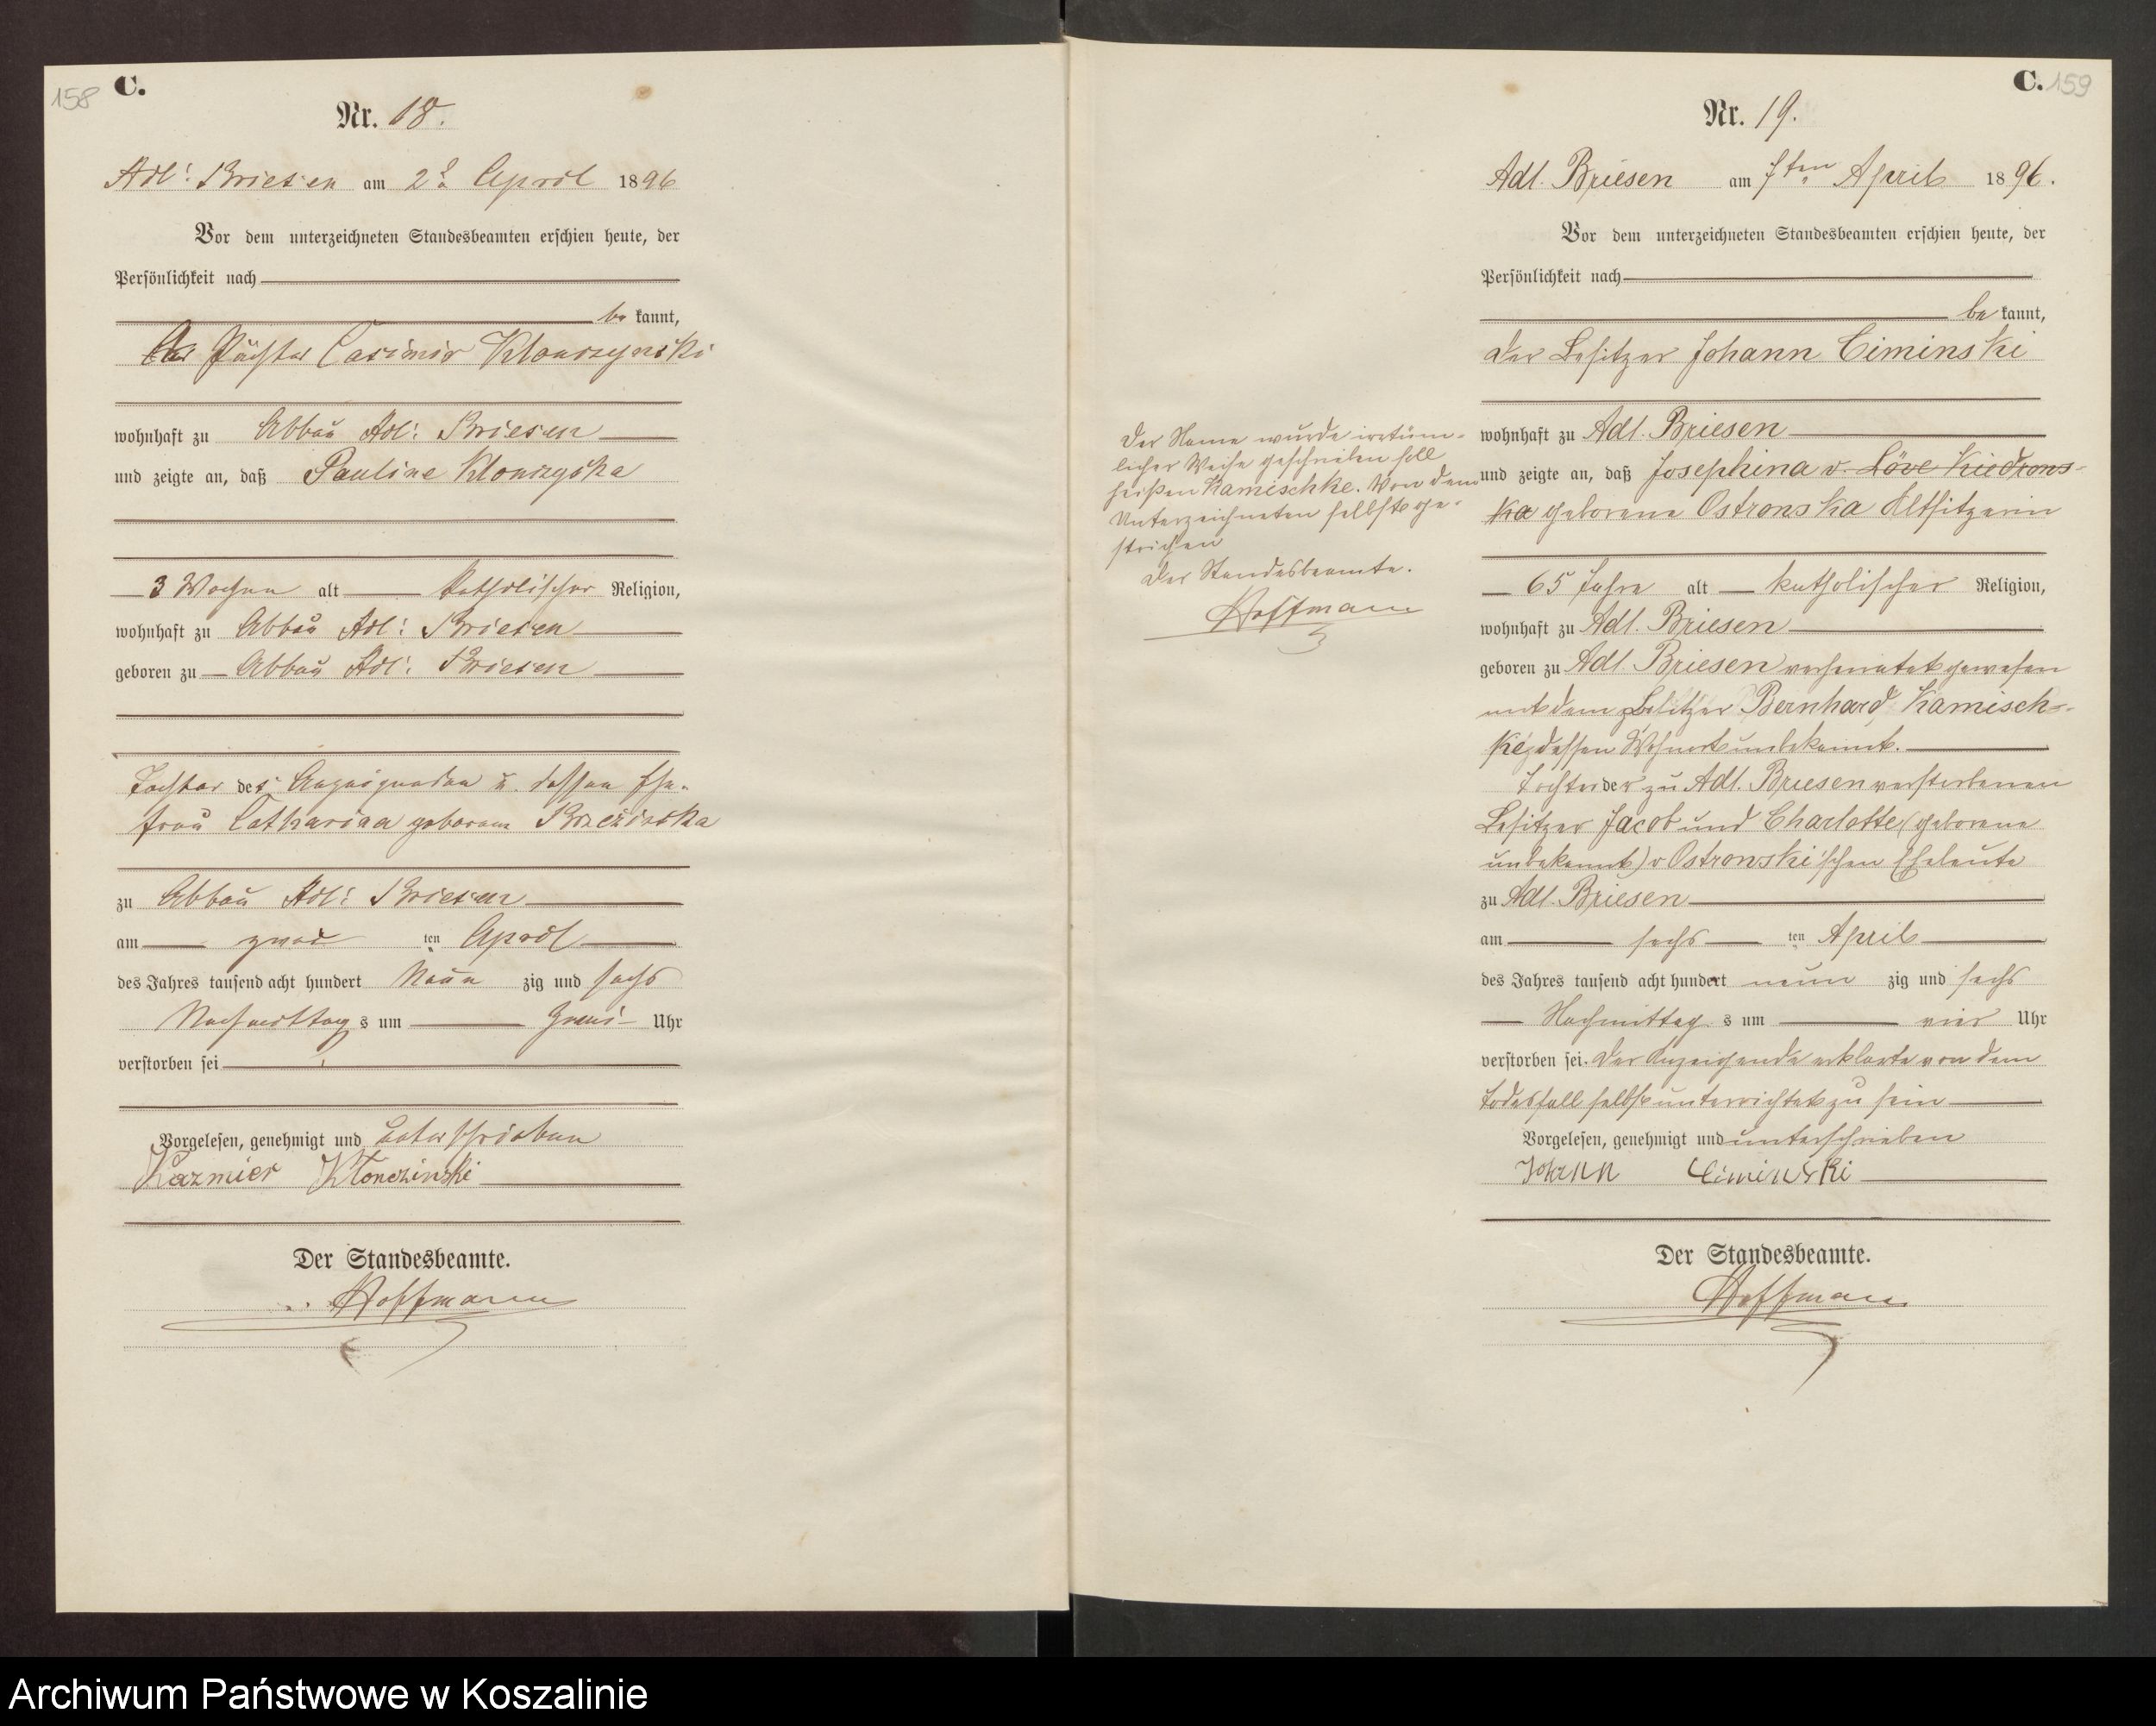 158
C.
Nr. 18.
Adl: Briesen am 2ᵗ April 1896
Vor dem unterzeichneten Standesbeamten erschien heute, der
Persönlichkeit nach
be kannt,
der Pächter Casimir Klonczynski
wohnhaft zu Abbau Adl: Briesen
und zeigte an, daß Pauline Klonczyska
3 Wochen alt katholischer Religion,
wohnhaft zu Abbau Adl: Briesen
geboren zu Abbau Adl: Briesen
Tochter des Anzeigenden u. dessen Ehe-
frau Catharina geborene Brezinska
zu Abbau Adl: Briesen
am zwei ten April
des Jahres tausend acht hundert Neun zig und sechs
Nachmittag s um zwei Uhr
verstorben sei
Vorgelesen, genehmigt und unterschrieben
Kazmier Klonczinski
Der Standesbeamte.
Hoffmann
C. 159
Nr. 19.
Adl. Briesen am 7ten April 1896.
Vor dem unterzeichneten Standesbeamten erschien heute, der
Persönlichkeit nach
be kannt,
der Besitzer Johann Ciminski
wohnhaft zu Adl. Briesen
und zeigte an, daß Josephina v. Löve Kiedrons-
ka geborene Ostronska Altsitzerin
65 Jahre alt katholischer Religion,
wohnhaft zu Adl. Briesen
geboren zu Adl. Briesen verheiratet gewesen
mit dem Besitzer Bernhard Kamisch-
ke, dessen Wohnort unbekannt.
Tochter der zu Adl. Briesen verstorbenen
Besitzer Jacob und Charlotte (geborene
unbekannt) v Ostronski'schen Eheleute
zu Adl. Briesen
am sechs ten April
des Jahres tausend acht hundert neun zig und sechs
Nachmittag s um vier Uhr
verstorben sei. Der Anzeigende erklärte von dem
Todesfall selbst unterrichtet zu sein
Vorgelesen, genehmigt und unterschrieben
Johann Ciminski
Der Standesbeamte.
Hoffmann
Der Name wurde irrtüm-
licher Weise geschrieben soll
heißen Kamischke. Von dem
Unterzeichneten selbst ge-
strichen
Der Standesbeamte.
Hoffmann
Archiwum Państwowe w Koszalinie